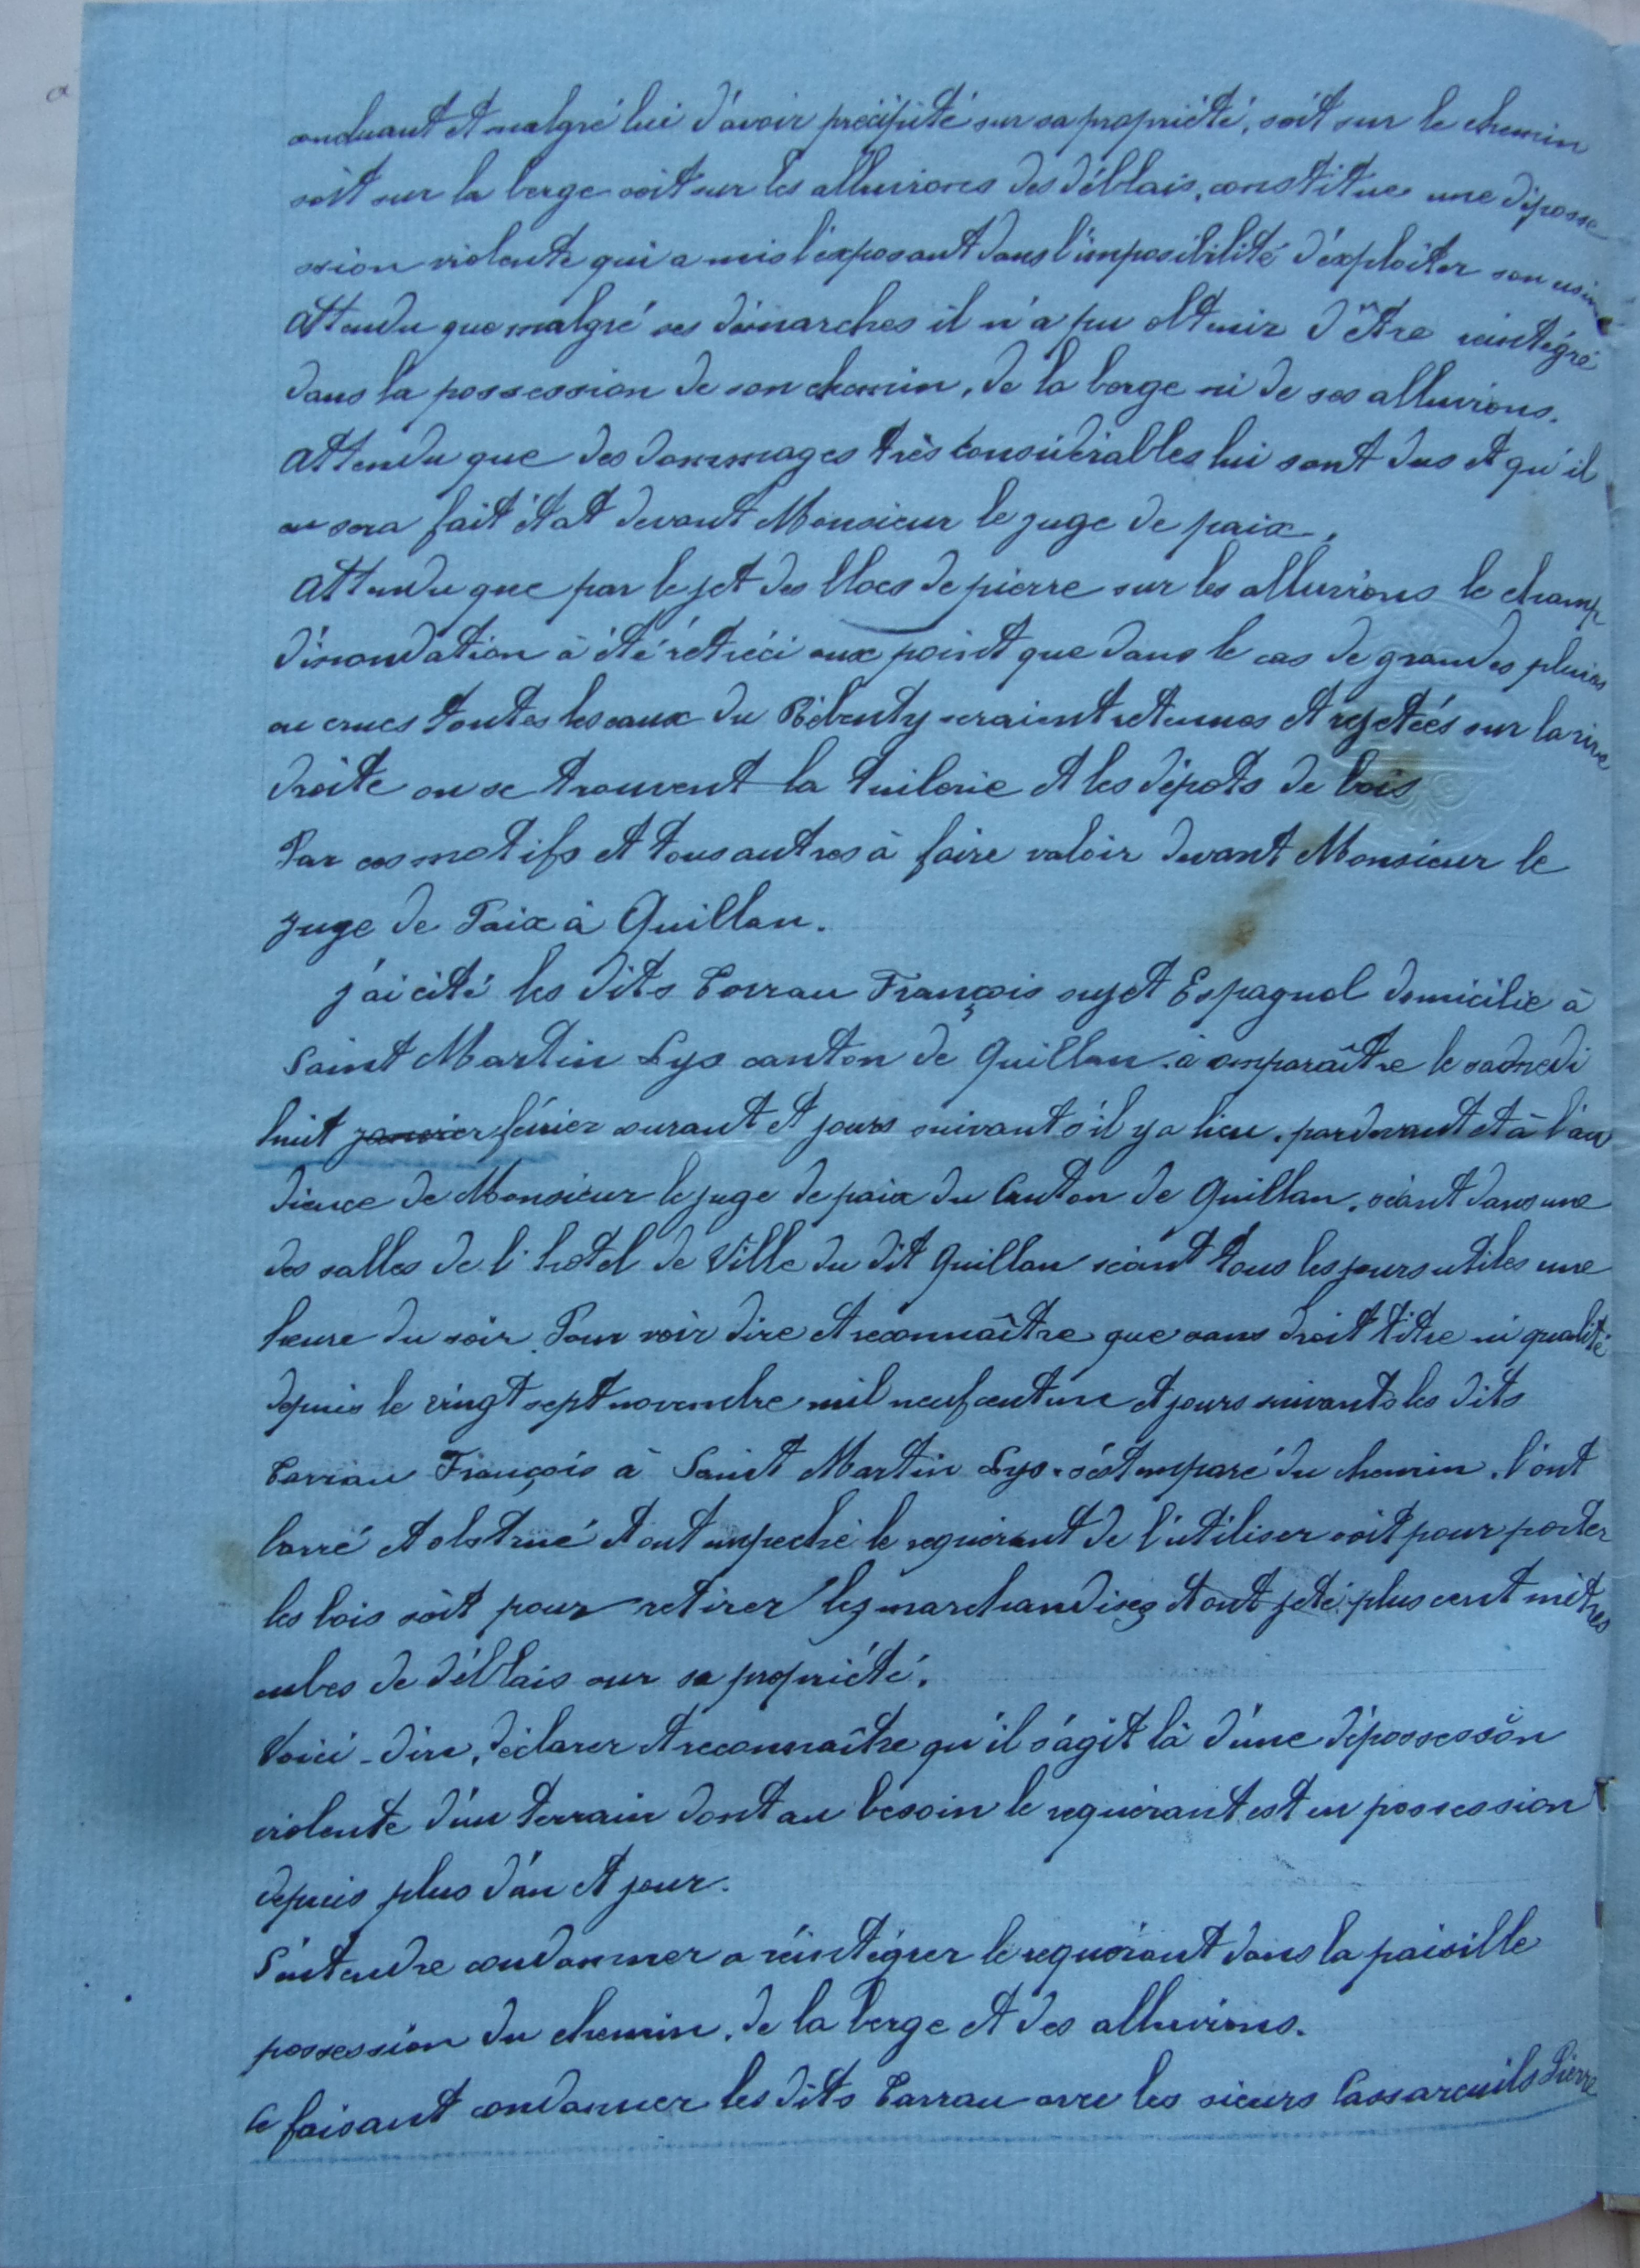 concluant et malgré lui d'avoir précipité sur sa propriété, soit sur le chemin
soit sur la berge soit sur les alluvions des déblais, constitue une déposse
ssion violente qui a mis l'exposant dans l'imposibilité d'exploiter son usine
Attendu que malgré ses démarches il n'a pu obtenir d'être réintégré
dans la possession de son chemin, de la berge ni de ses alluvions.
Attendu que des dommages très considérables lui sont dus et qu'il
en sera fait état devant Monsieur le juge de paix.
Attendu que par le jet des blocs de pierre sur les alluvions le champ
d'inondation à été rétréci aux point que dans le cas de grandes pluies
ou crues toutes les eaux du Rébenty seraient retenues et rejetées sur la rive
droite ou se trouvent la tuilerie et les dépots de bois
Par ces motifs et tous autres à faire valoir devant Monsieur le
juge de Paix à Quillan.
j'ai cité les dits Tarrau François sujet Espagnol domicilié à
Saint Martin Lys canton de Quillan à comparaître le samedi
huit janvier février courant et jours suivant s'il y a lieu, pardevant et à l'au
dience de Monsieur le juge de paix du Canton de Quillan, séant dans une
des salles de l'hôtel de Ville du dit Quillan séant tous les jours utiles une
heure du soir. Pour voir dire et reconnaître que sans droit titre ni qualité
depuis le vingt sept novembre mil neuf cent un et jours suivants les dits
Tarrau François à Saint Martin Lys. s'est emparé du chemin, l'ont
barré et obstrué et ont empeché le requérant de l'utiliser soit pour porter
les bois soit pour retirer les marchandises et ont jeté plus cent mètres
cubes de déblais sur sa propriété.
Voici - dire, déclarer et reconnaître qu'il s'agit là d'une dépossession
violente d'un terrain dont au besoin le requérant est en possession
depuis plus d'an et jour.
S'entendre condamner a réintégrer le requérant dans la paisille
possession du chemin, de la berge et des alluvions.
Ce faisant condamner les dits Tarrau avec les sieurs Cassareuils Pierre